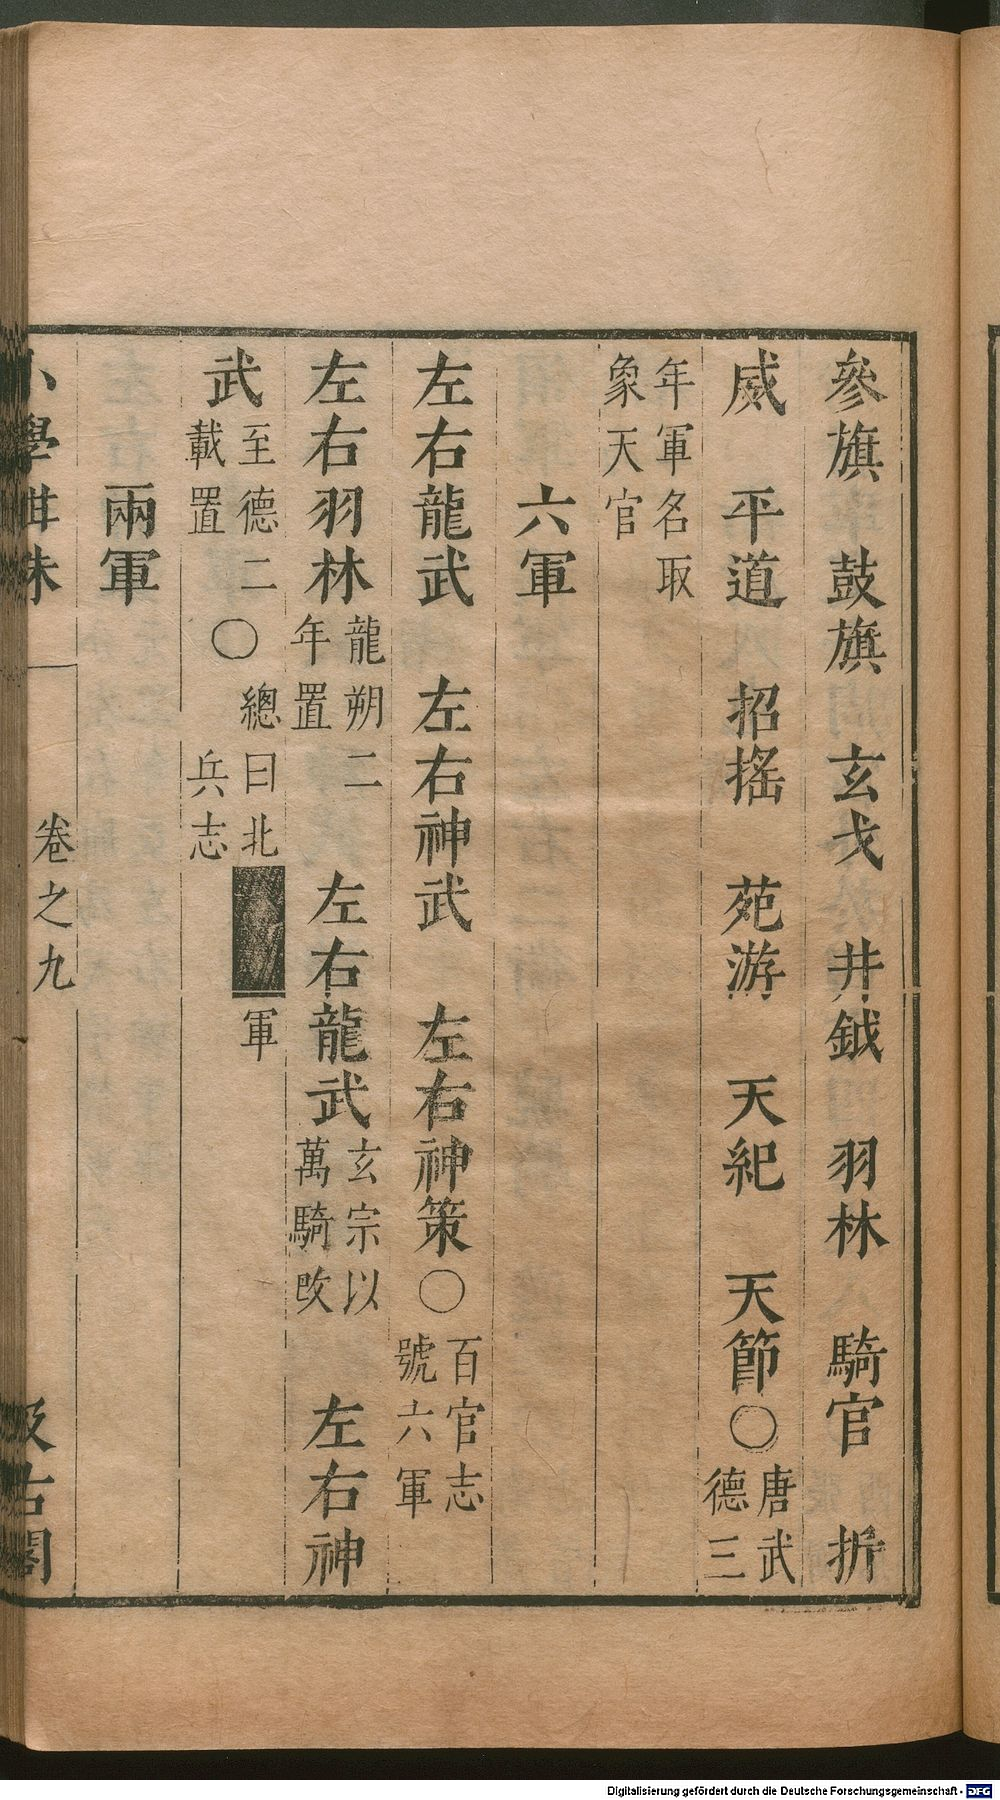 參旗　鼓旗　玄戈　井鉞　羽林　騎官　折
威　平道　招搖　苑游　天紀　天節○唐武德三
年軍名取象天官
六軍
左右龍武　左右神武　左右神策○百官志號六軍
左右羽林龍朔二年置　左右龍武玄宗以萬騎改　左右神
武至德二載置○總曰北軍兵志
兩軍
小學紺珠　卷之九　汲古閣
Digitalisierung gefördert durch die Deutsche Forschungsgemeinschaft - DFG